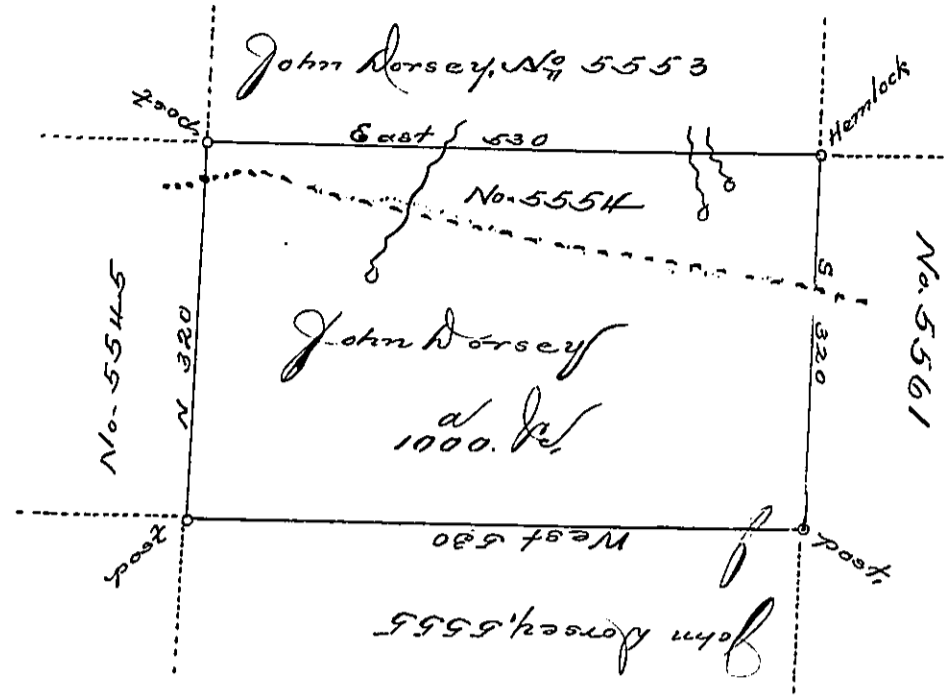 John Dorsey, No 5553
Post
Hemlock
East 530
No. 5554
No. 5545
N 320
S 320
No. 5561
John Dorsey
a
1000.
West 530
Post
Post
John Dorsey, 5555